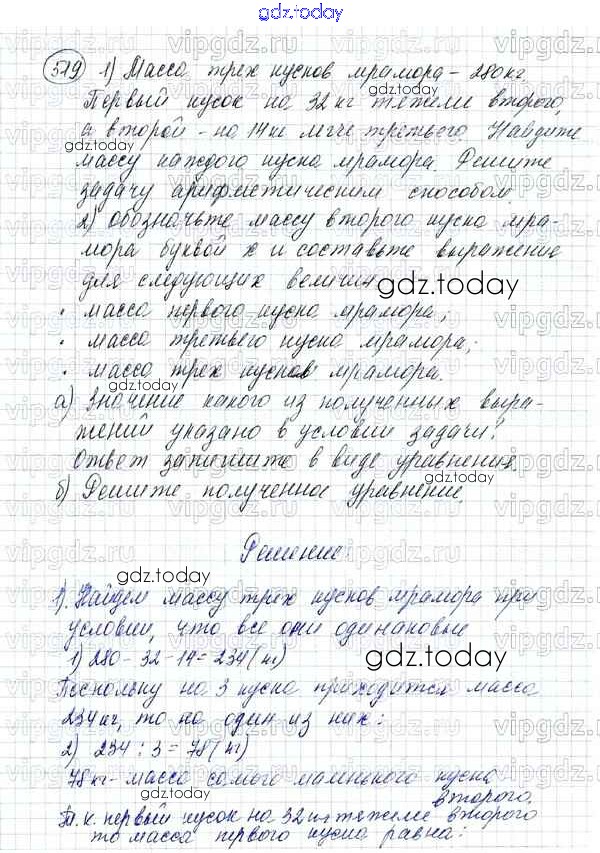 gdz.today
519 1) Масса трех кусков мрамора - 280 кг.
Первый кусок на 32 кг тяжелее второго,
а второй - на 14 кг легче третьего. Найдите
массу каждого куска мрамора. Решите
задачу арифметическим способом.
2) обозначьте массу второго куска мра-
мора буквой х и составьте выражение
для следующих величин
• масса первого куска мрамора;
• масса третьего куска мрамора;
• масса трех кусков мрамора.
а) Значение какого из полученных выра-
жений указано в условии задачи?
ответ запишите в виде уравнения.
б) Решите полученное уравнение.
Решение:
1). Найдем массу трех кусков мрамора при
условии, что все они одинаковые
1) 280 - 32 - 14 = 234 (кг)
Поскольку на 3 куска приходится масса
234 кг, то на один из них:
2) 234 : 3 = 78 (кг)
78 кг - масса самого маленького куска
второго.
Т. к. первый кусок на 32 кг тяжелее второго
то масса первого куска равна: